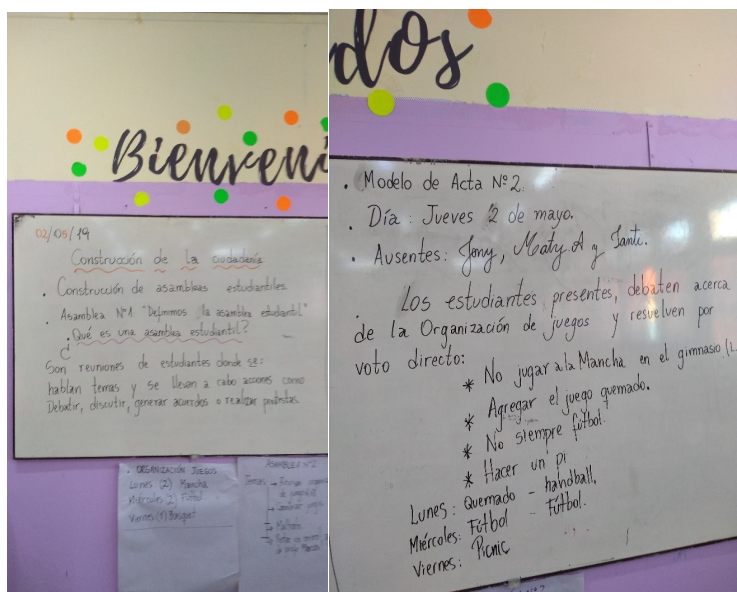 Bienveni
02/05/19
Construcción de la ciudadanía
. Construcción de asambleas estudiantiles.
. Asamblea Nº1 "Definimos la asamblea estudiantil"
. ¿Qué es una asamblea estudiantil?
Son reuniones de estudiantes donde se:
hablan temas y se llevan a cabo acciones como
Debatir, discutir, generar acuerdos o realizar protestas.
. ORGANIZACIÓN JUEGOS
Lunes (2) Mancha
Miércoles (2) Fútbol
Viernes (1) Basquet
ASAMBLEA Nº2
Temas
dos
. Modelo de Acta Nº2.
. Día: Jueves 2 de mayo.
. Ausentes: Jony, Maty A y Santi.
. Los estudiantes presentes, debaten acerca
de la Organización de juegos y resuelven por
voto directo:
* No jugar a la Mancha en el gimnasio (L.
* Agregar el juego quemado.
* No siempre fútbol.
* Hacer un pi
Lunes: Quemado - handball.
Miércoles: Fútbol - Fútbol.
Viernes: Picnic